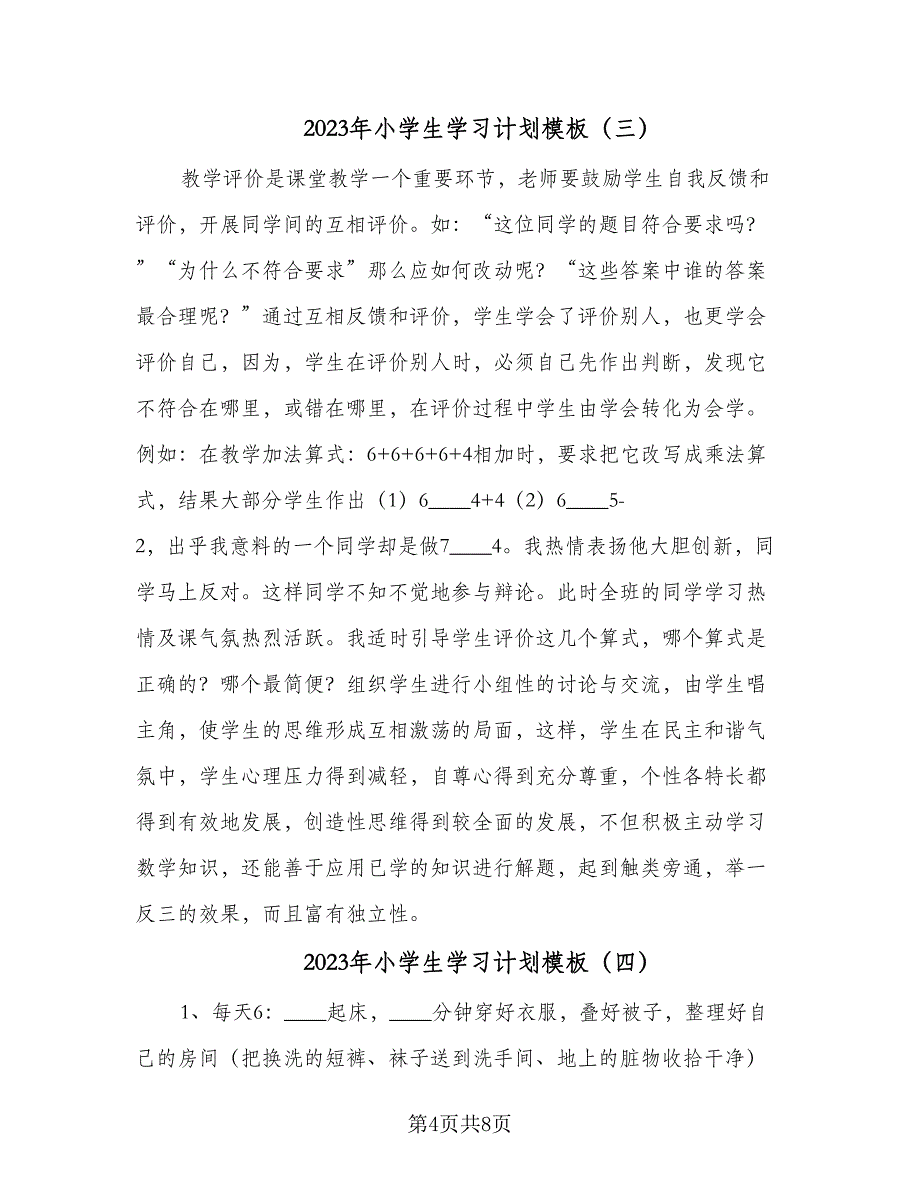 2023年小学生学习计划模板（三）
教学评价是课堂教学一个重要环节，老师要鼓励学生自我反馈和
评价，开展同学间的互相评价。如：“这位同学的题目符合要求吗？
”“为什么不符合要求”那么应如何改动呢？“这些答案中谁的答案
最合理呢？”通过互相反馈和评价，学生学会了评价别人，也更学会
评价自己，因为，学生在评价别人时，必须自己先作出判断，发现它
不符合在哪里，或错在哪里，在评价过程中学生由学会转化为会学。
例如：在教学加法算式：6+6+6+6+4相加时，要求把它改写成乘法算
式，结果大部分学生作出（1）6____4+4（2）6____5-
2，出乎我意料的一个同学却是做7____4。我热情表扬他大胆创新，同
学马上反对。这样同学不知不觉地参与辩论。此时全班的同学学习热
情及课气氛热烈活跃。我适时引导学生评价这几个算式，哪个算式是
正确的？哪个最简便？组织学生进行小组性的讨论与交流，由学生唱
主角，使学生的思维形成互相激荡的局面，这样，学生在民主和谐气
氛中，学生心理压力得到减轻，自尊心得到充分尊重，个性各特长都
得到有效地发展，创造性思维得到较全面的发展，不但积极主动学习
数学知识，还能善于应用已学的知识进行解题，起到触类旁通，举一
反三的效果，而且富有独立性。
2023年小学生学习计划模板（四）
1、每天6：____起床，____分钟穿好衣服，叠好被子，整理好自
己的房间（把换洗的短裤、袜子送到洗手间、地上的脏物收拾干净）
第4页共8页